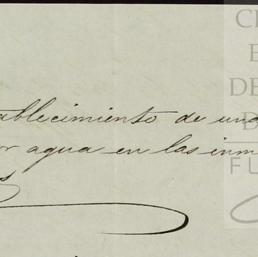 ablecimiento de una
or agua en las inm
s
C
E
DE
D
FU